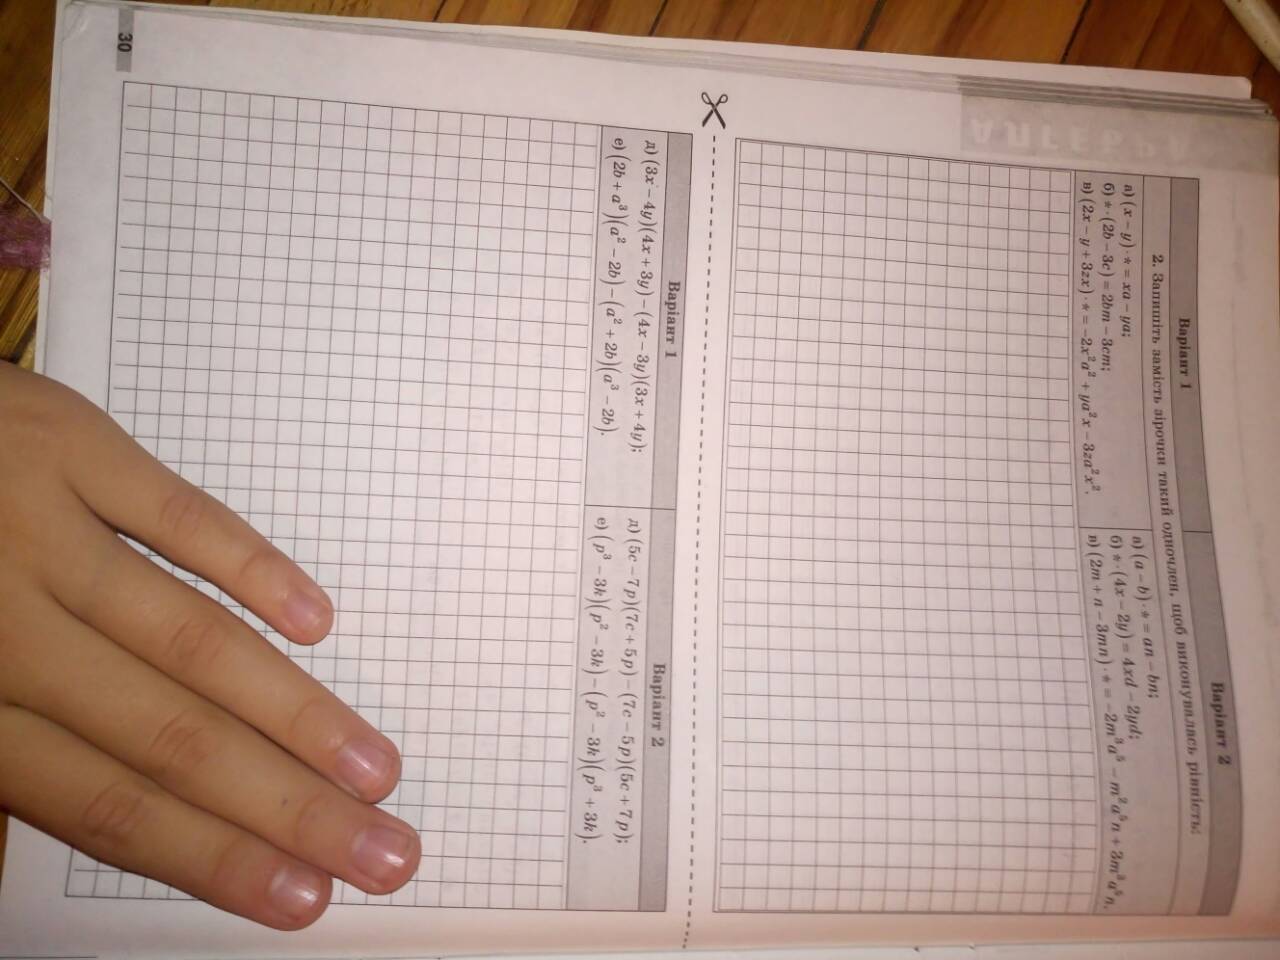 Варіант 1
Варіант 2
2. Запишіть замість зірочки такий одночлен, щоб виконувалась рівність:
а) (x – y) · * = xa – ya;
б) * · (2b – 3c) = 2bm – 3cm;
в) (2x – y + 3zx) · * = –2x²a² + ya²x – 3za²x².
а) (a – b) · * = an – bn;
б) * · (4x – 2y) = 4xd – 2yd;
в) (2m + n – 3mn) · * = –2m³a⁵ – m²a⁵n + 3m³a⁵n.
Варіант 1
Варіант 2
д) (3x – 4y)(4x + 3y) – (4x – 3y)(3x + 4y);
е) (2b + a³)(a² – 2b) – (a² + 2b)(a³ – 2b).
д) (5c – 7p)(7c + 5p) – (7c – 5p)(5c + 7p);
е) (p³ – 3k)(p² – 3k) – (p² – 3k)(p³ + 3k).
30